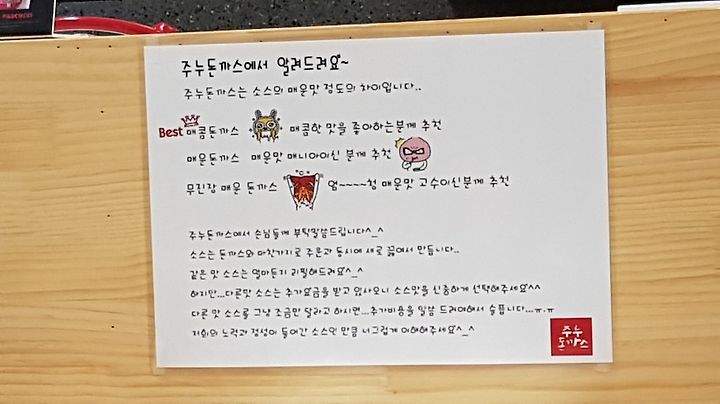 주누돈까스에서 알려드려요~
주누돈까스는 소스의 매운맛 정도의 차이입니다..
Best 매콤돈까스 매콤한 맛을 좋아하는분께 추천
매운돈까스 매운맛 매니아이신 분께 추천
무진장 매운 돈까스 엄~~~~청 매운맛 고수이신분께 추천
주누돈까스에서 손님들께 부탁말씀드립니다^_^
소스는 돈까스와 마찬가지로 주문과 동시에 새로 끓여서 만듭니다..
같은 맛 소스는 얼마든지 리필해드려요^_^
하지만...다른맛 소스는 추가요금을 받고 있사오니 소스맛을 신중하게 선택해주세요^^
다른 맛 소스를 그냥 조금만 달라고 하시면...추가비용을 말씀 드려야해서 슬픕니다...ㅠ.ㅠ
저희의 노력과 정성이 들어간 소스인 만큼 너그럽게 이해해주세요^_^
주누
돈까스